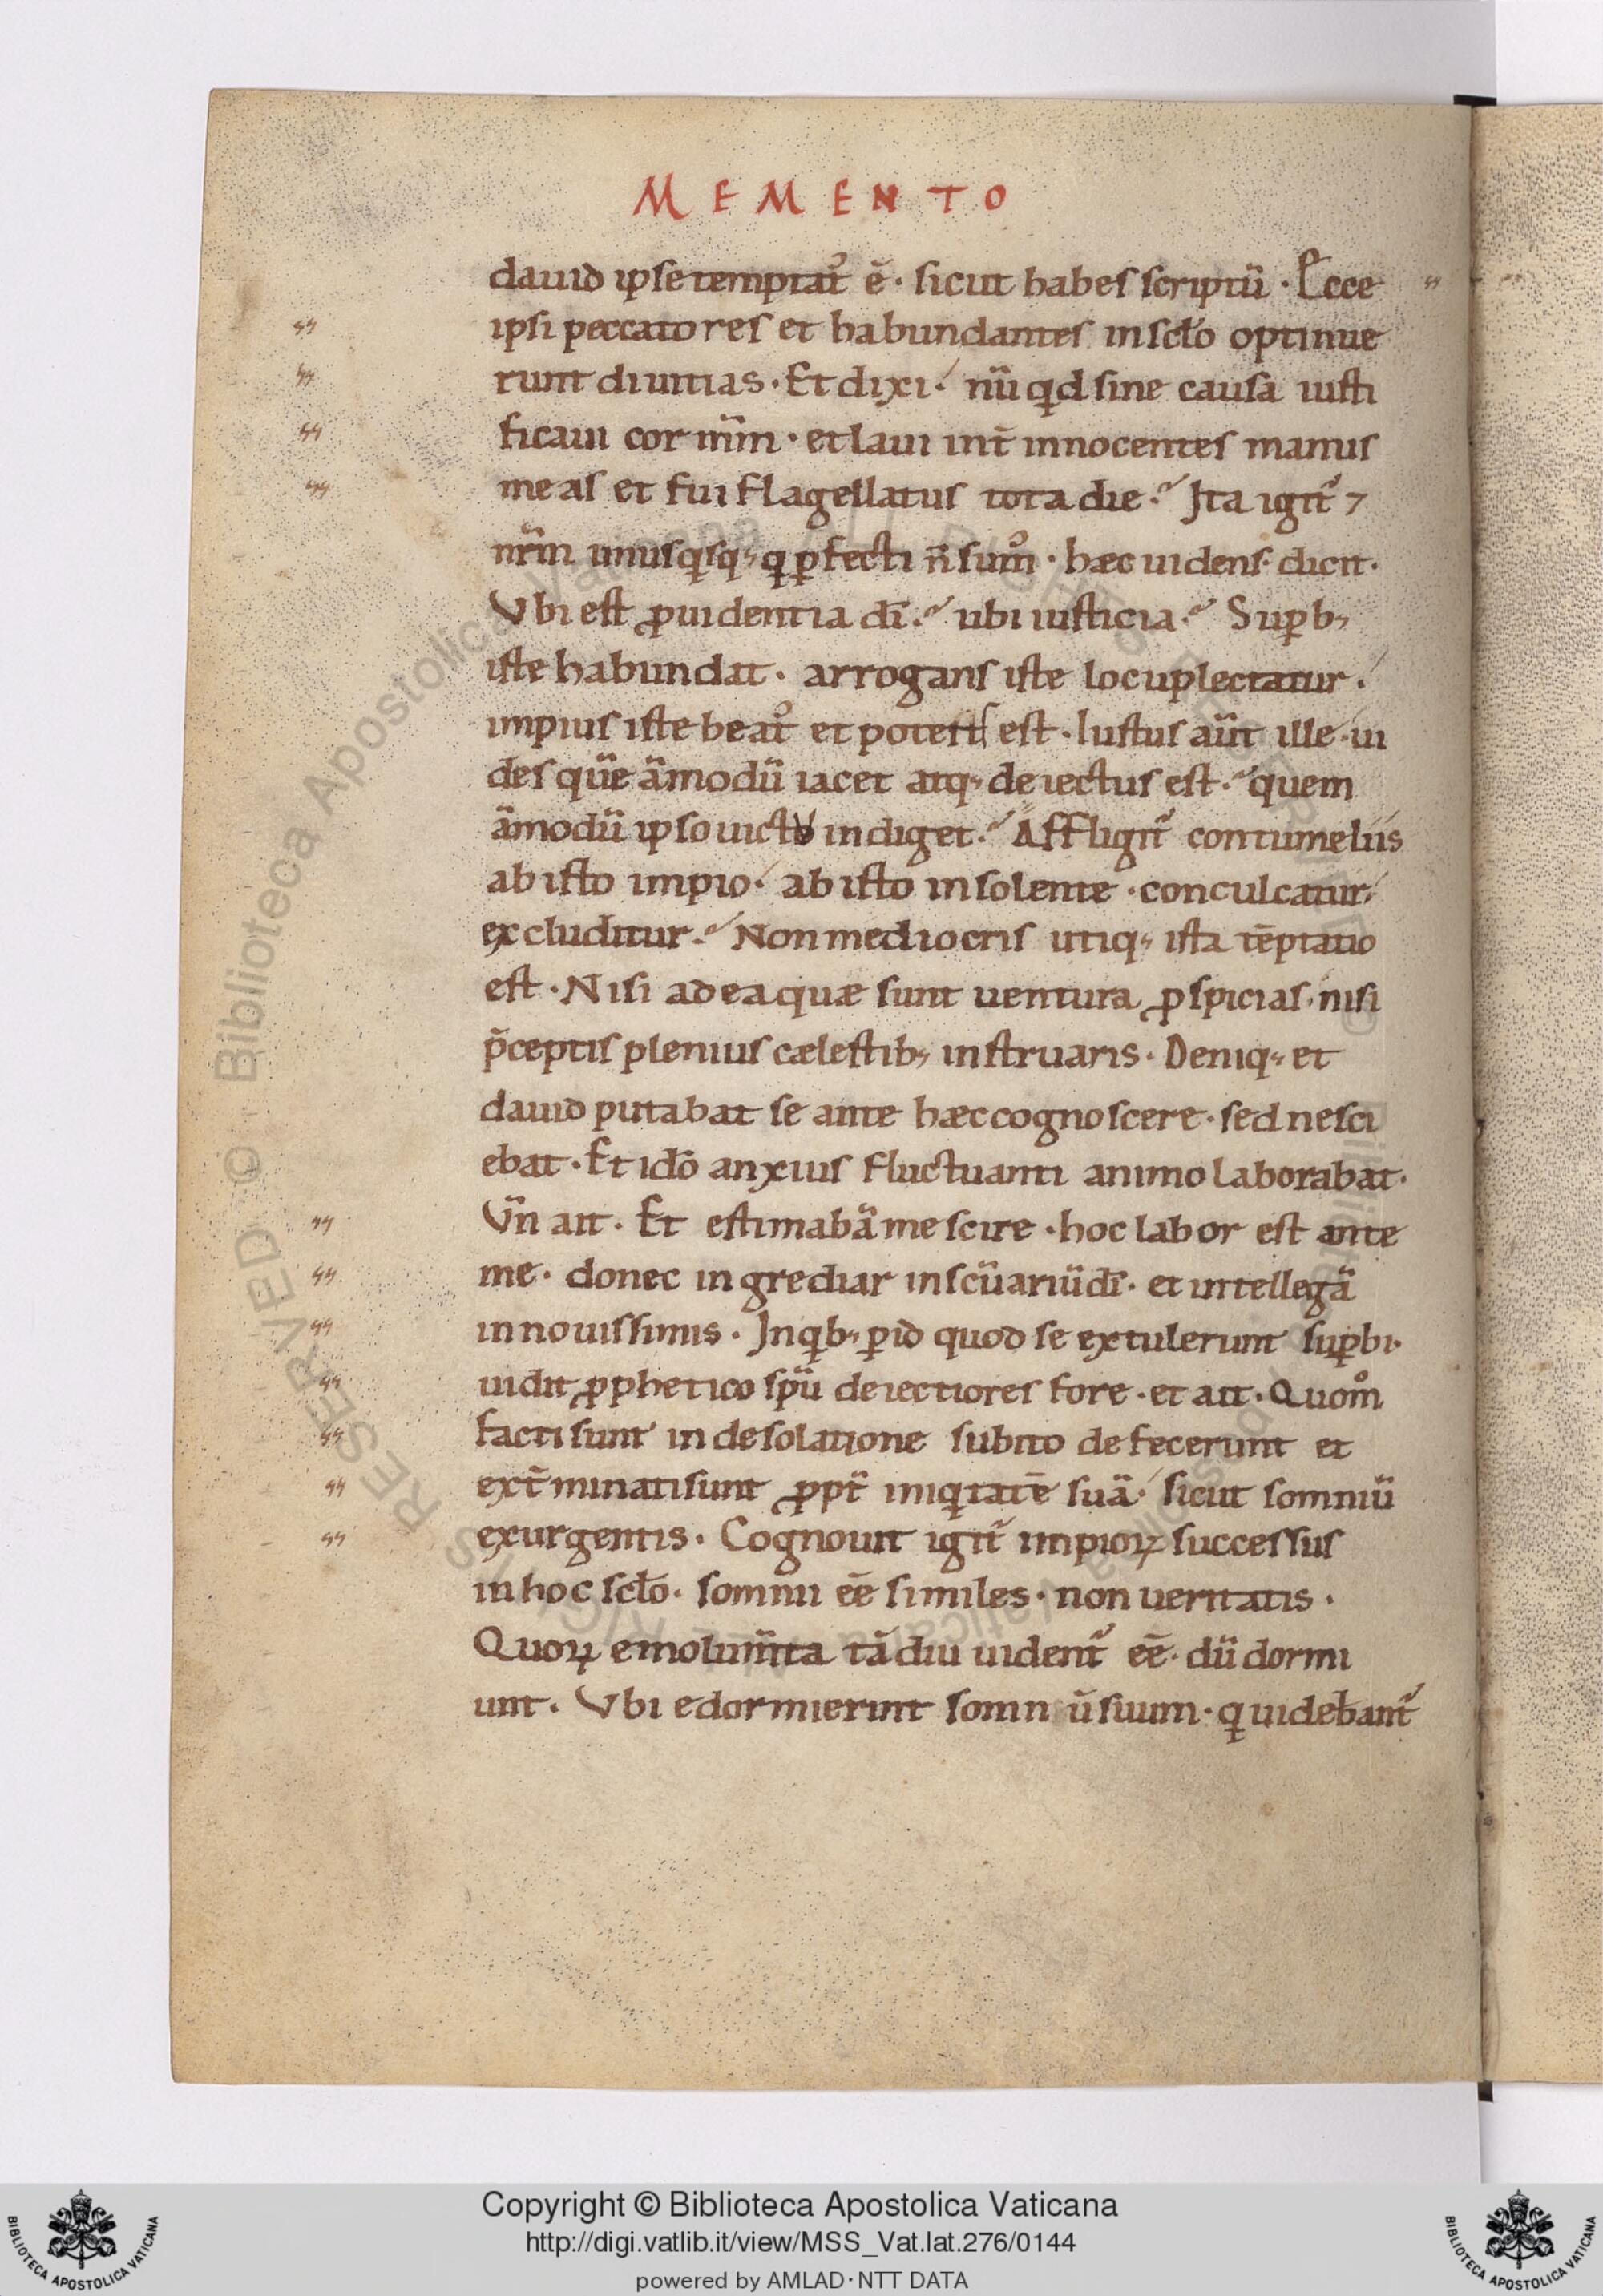 MEMENTO
dauid ipse temptat᷒ ē · sicut habes scriptū · Ecce
ipsi peccatores et habundantes in scło optinue
runt diuitias · Et dixi · nū qd sine causa iusti
ficaui cor mm̄ · et laui int̄ innocentes manus
meas et fui flagellatus tota die · Ita igit᷒ ⁊
nrm̄ unusqsq; q ꝑfecti n̄ sum᷒ · hæc uidens dicit ·
Vbi est ꝓuidentia dī · ubi iusticia · Suꝑb;
iste habundat · arrogans iste locuplectatur ·
impius iste beat᷒ et potens est · Iustus aūt ille · ui
des quē āmodū iacet atq; deiectus est · quem
āmodū ipso uictu indiget · Affligit᷒ contumeliis
ab isto impio · ab isto insolente · conculcatur
excluditur · Non mediocris utiq; ista tēptatio
est · Nisi ad ea quæ sunt uentura ꝓspicias · nisi
p̄ceptis plenius cælestib; instruaris · Deniq; et
dauid putabat se ante hæc cognoscere · sed nesci
ebat · Et idō anxius fluctuanti animo laborabat ·
Vn̄ ait · Et estimabā me scire · hoc labor est ante
me · donec ingrediar in scūariū dī · et intellegā
in nouissimis · In qb; ꝑ id quod se extulerunt suꝑbi ·
uidit ꝓphetico spū deiectiores fore · et ait · Quom᷒
facti sunt in desolatione subito defecerunt et
ext̄minati sunt ꝓpt̄ iniqtatē suā · sicut somniū
exurgentis · Cognouit igit᷒ impioꝝ successus
in hoc scło · somnii eē similes · non ueritatis ·
Quoꝝ emolum̄ta tādiu uident᷒ eē · dū dormi
unt · Vbi edormierint somnū suum · q uidebant᷒
Copyright © Biblioteca Apostolica Vaticana
http://digi.vatlib.it/view/MSS_Vat.lat.276/0144
powered by AMLAD·NTT DATA
BIBLIOTECA APOSTOLICA VATICANA
BIBLIOTECA APOSTOLICA VATICANA